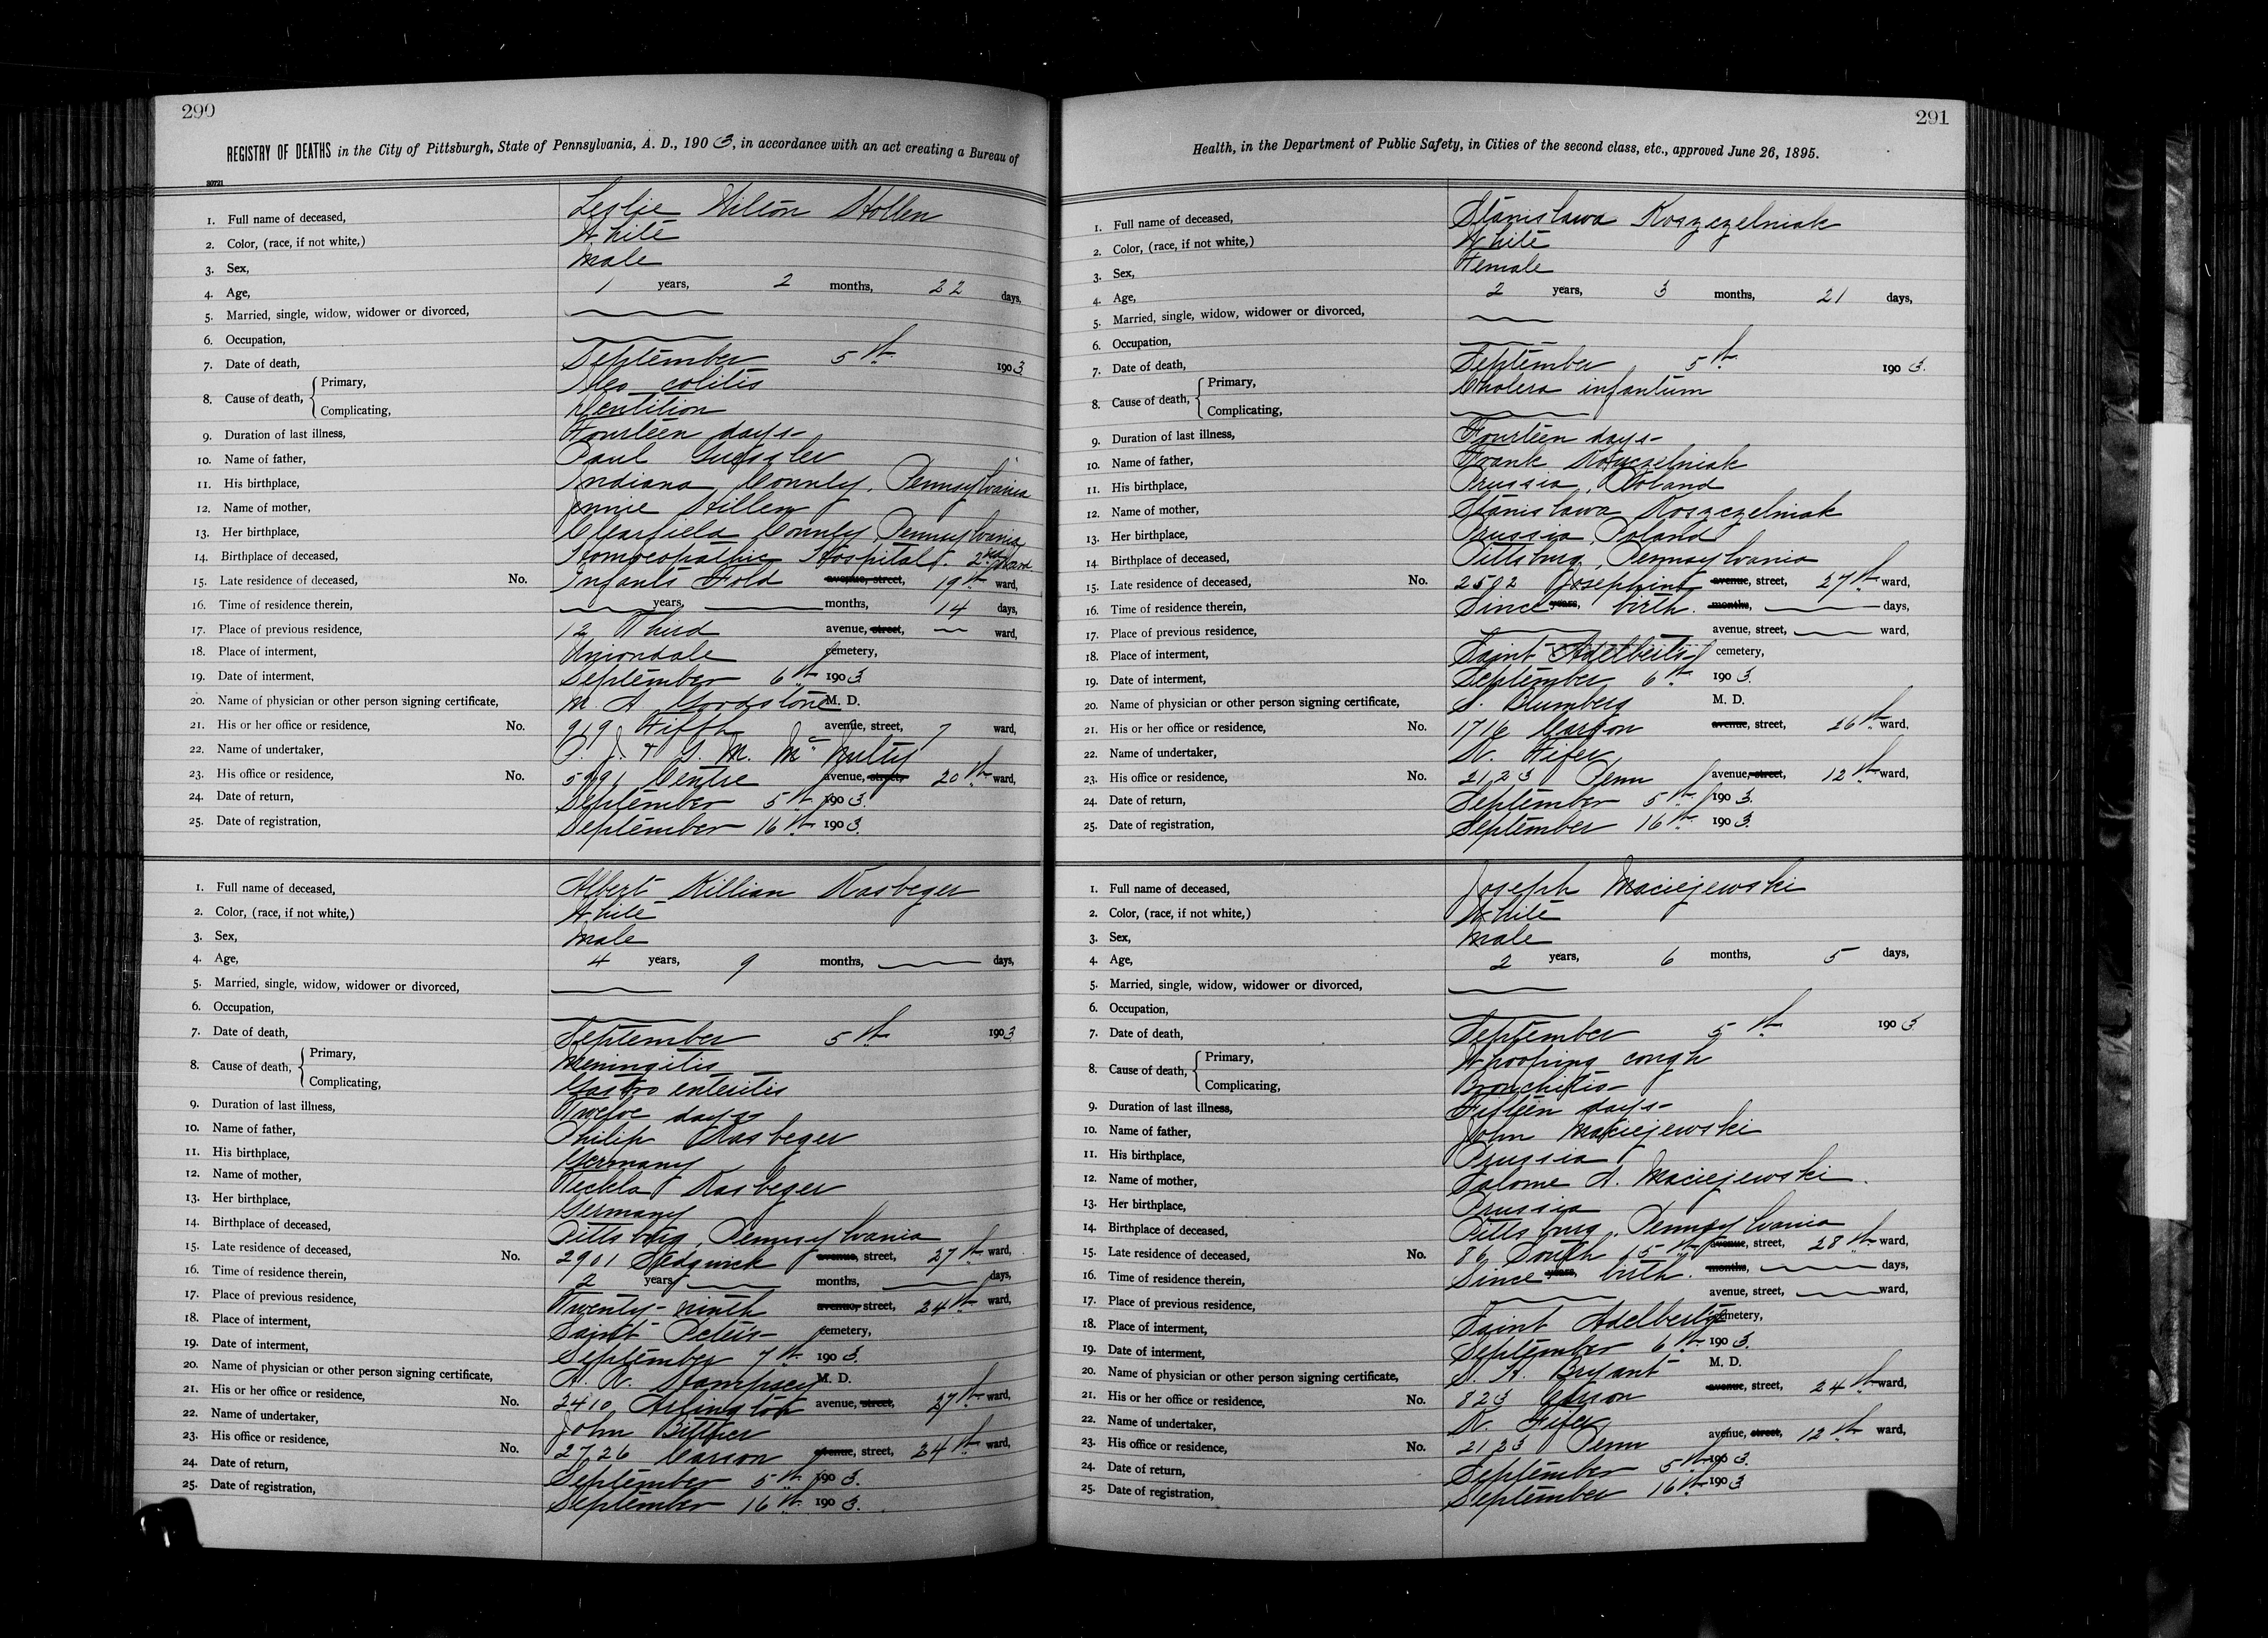 290
REGISTRY OF DEATHS in the City of Pittsburgh, State of Pennsylvania, A. D., 1903, in accordance with an act creating a Bureau of
30721
1. Full name of deceased, Leslie Wilton Hollen
2. Color, (race, if not white,) White
3. Sex, Male
4. Age, 1 years, 2 months, 22 days,
5. Married, single, widow, widower or divorced,
6. Occupation,
7. Date of death, September 5th 1903
8. Cause of death, Primary, Ileo colitis
Complicating, Dentition
9. Duration of last illness, Fourteen days
10. Name of father, Paul
11. His birthplace, Indiana County, Pennsylvania
12. Name of mother, Jennie
13. Her birthplace, Clearfield County, Pennsylvania
14. Birthplace of deceased, Homoeopathic Hospital. 2nd Ward
15. Late residence of deceased, No. Infants Fold avenue, street, 19th ward,
16. Time of residence therein, years, months, 14 days,
17. Place of previous residence, 12 Third avenue, street, ward,
18. Place of interment, Uniondale cemetery,
19. Date of interment, September 6th 1903
20. Name of physician or other person signing certificate, M. A. Goodstone M. D.
21. His or her office or residence, No. 919 Fifth avenue, street, 7 ward,
22. Name of undertaker, P. J. & G. M. McNulty
23. His office or residence, No. 5991 Centre avenue, street, 20th ward,
24. Date of return, September 5th 1903.
25. Date of registration, September 16th 1903.
1. Full name of deceased, Albert Killian Rasbeger
2. Color, (race, if not white,) White
3. Sex, Male
4. Age, 4 years, 9 months, days,
5. Married, single, widow, widower or divorced,
6. Occupation,
7. Date of death, September 5th 1903
8. Cause of death, Primary, Meningitis
Complicating, Gastro enteritis
9. Duration of last illness, Twelve days
10. Name of father, Philip Rasbeger
11. His birthplace, Germany
12. Name of mother, Teckla Rasbeger
13. Her birthplace, Germany
14. Birthplace of deceased, Pittsburg, Pennsylvania
15. Late residence of deceased, No. 2901 Sedgwick avenue, street, 27th ward,
16. Time of residence therein, 2 years, months, days,
17. Place of previous residence, Twenty-ninth avenue, street, 24th ward,
18. Place of interment, Saint Peter's cemetery,
19. Date of interment, September 7th 1903.
20. Name of physician or other person signing certificate, M. D.
21. His or her office or residence, No. 2410 Arlington avenue, street, 27th ward,
22. Name of undertaker, John Bittner
23. His office or residence, No. 2726 Carson avenue, street, 24th ward,
24. Date of return, September 5th 1903.
25. Date of registration, September 16th 1903.
291
Health, in the Department of Public Safety, in Cities of the second class, etc., approved June 26, 1895.
1. Full name of deceased, Stanislawa Koszczelniak
2. Color, (race, if not white,) White
3. Sex, Female
4. Age, 2 years, 3 months, 21 days,
5. Married, single, widow, widower or divorced,
6. Occupation,
7. Date of death, September 5th 1903.
8. Cause of death, Primary, Cholera infantum
Complicating,
9. Duration of last illness, Fourteen days
10. Name of father, Frank Koszczelniak
11. His birthplace, Prussia, Poland
12. Name of mother, Stanislawa Koszczelniak
13. Her birthplace, Prussia, Poland
14. Birthplace of deceased, Pittsburg, Pennsylvania
15. Late residence of deceased, No. 2502 Josephine avenue, street, 27th ward,
16. Time of residence therein, Since years, birth. months, days,
17. Place of previous residence, avenue, street, ward,
18. Place of interment, Saint Adelberts cemetery,
19. Date of interment, September 6th 1903.
20. Name of physician or other person signing certificate, S. Blumberg M. D.
21. His or her office or residence, No. 1716 Carson avenue, street, 26th ward,
22. Name of undertaker, W. Fifer
23. His office or residence, No. 2123 Penn avenue, street, 12th ward,
24. Date of return, September 5th 1903.
25. Date of registration, September 16th 1903.
1. Full name of deceased, Joseph Maciejewski
2. Color, (race, if not white,) White
3. Sex, Male
4. Age, 2 years, 6 months, 5 days,
5. Married, single, widow, widower or divorced,
6. Occupation,
7. Date of death, September 5th 1903
8. Cause of death, Primary, Whooping cough
Complicating, Bronchitis
9. Duration of last illness, Fifteen days
10. Name of father, John Maciejewski
11. His birthplace, Prussia
12. Name of mother, Salome A. Maciejewski.
13. Her birthplace, Prussia
14. Birthplace of deceased, Pittsburg, Pennsylvania
15. Late residence of deceased, No. 86 South 15th avenue, street, 28th ward,
16. Time of residence therein, Since years, birth. months, days,
17. Place of previous residence, avenue, street, ward,
18. Place of interment, Saint Adelberts cemetery,
19. Date of interment, September 6th 1903.
20. Name of physician or other person signing certificate, S. K. Bryant M. D.
21. His or her office or residence, No. 823 Carson avenue, street, 24th ward,
22. Name of undertaker, W. Fifer
23. His office or residence, No. 2123 Penn avenue, street, 12th ward,
24. Date of return, September 5th 1903.
25. Date of registration, September 16th 1903